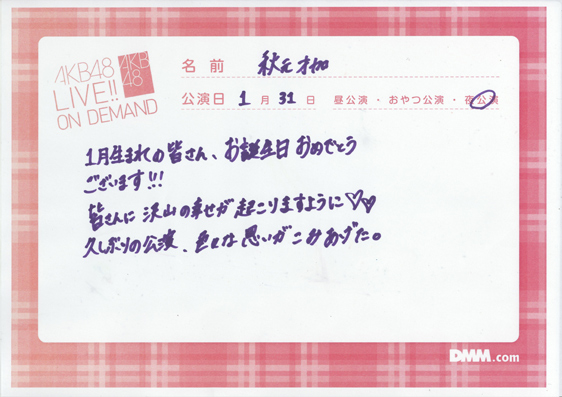 AKB48
LIVE!!
ON DEMAND
AKB
48
名前 秋元才加
公演日 1月31日 昼公演・おやつ公演・夜公演
1月生まれの皆さん、お誕生日おめでとう
ございます!!!
皆さんに沢山の幸せが起こりますように♡♡
久しぶりの公演、色々な思いがこみあげた。
DMM.com